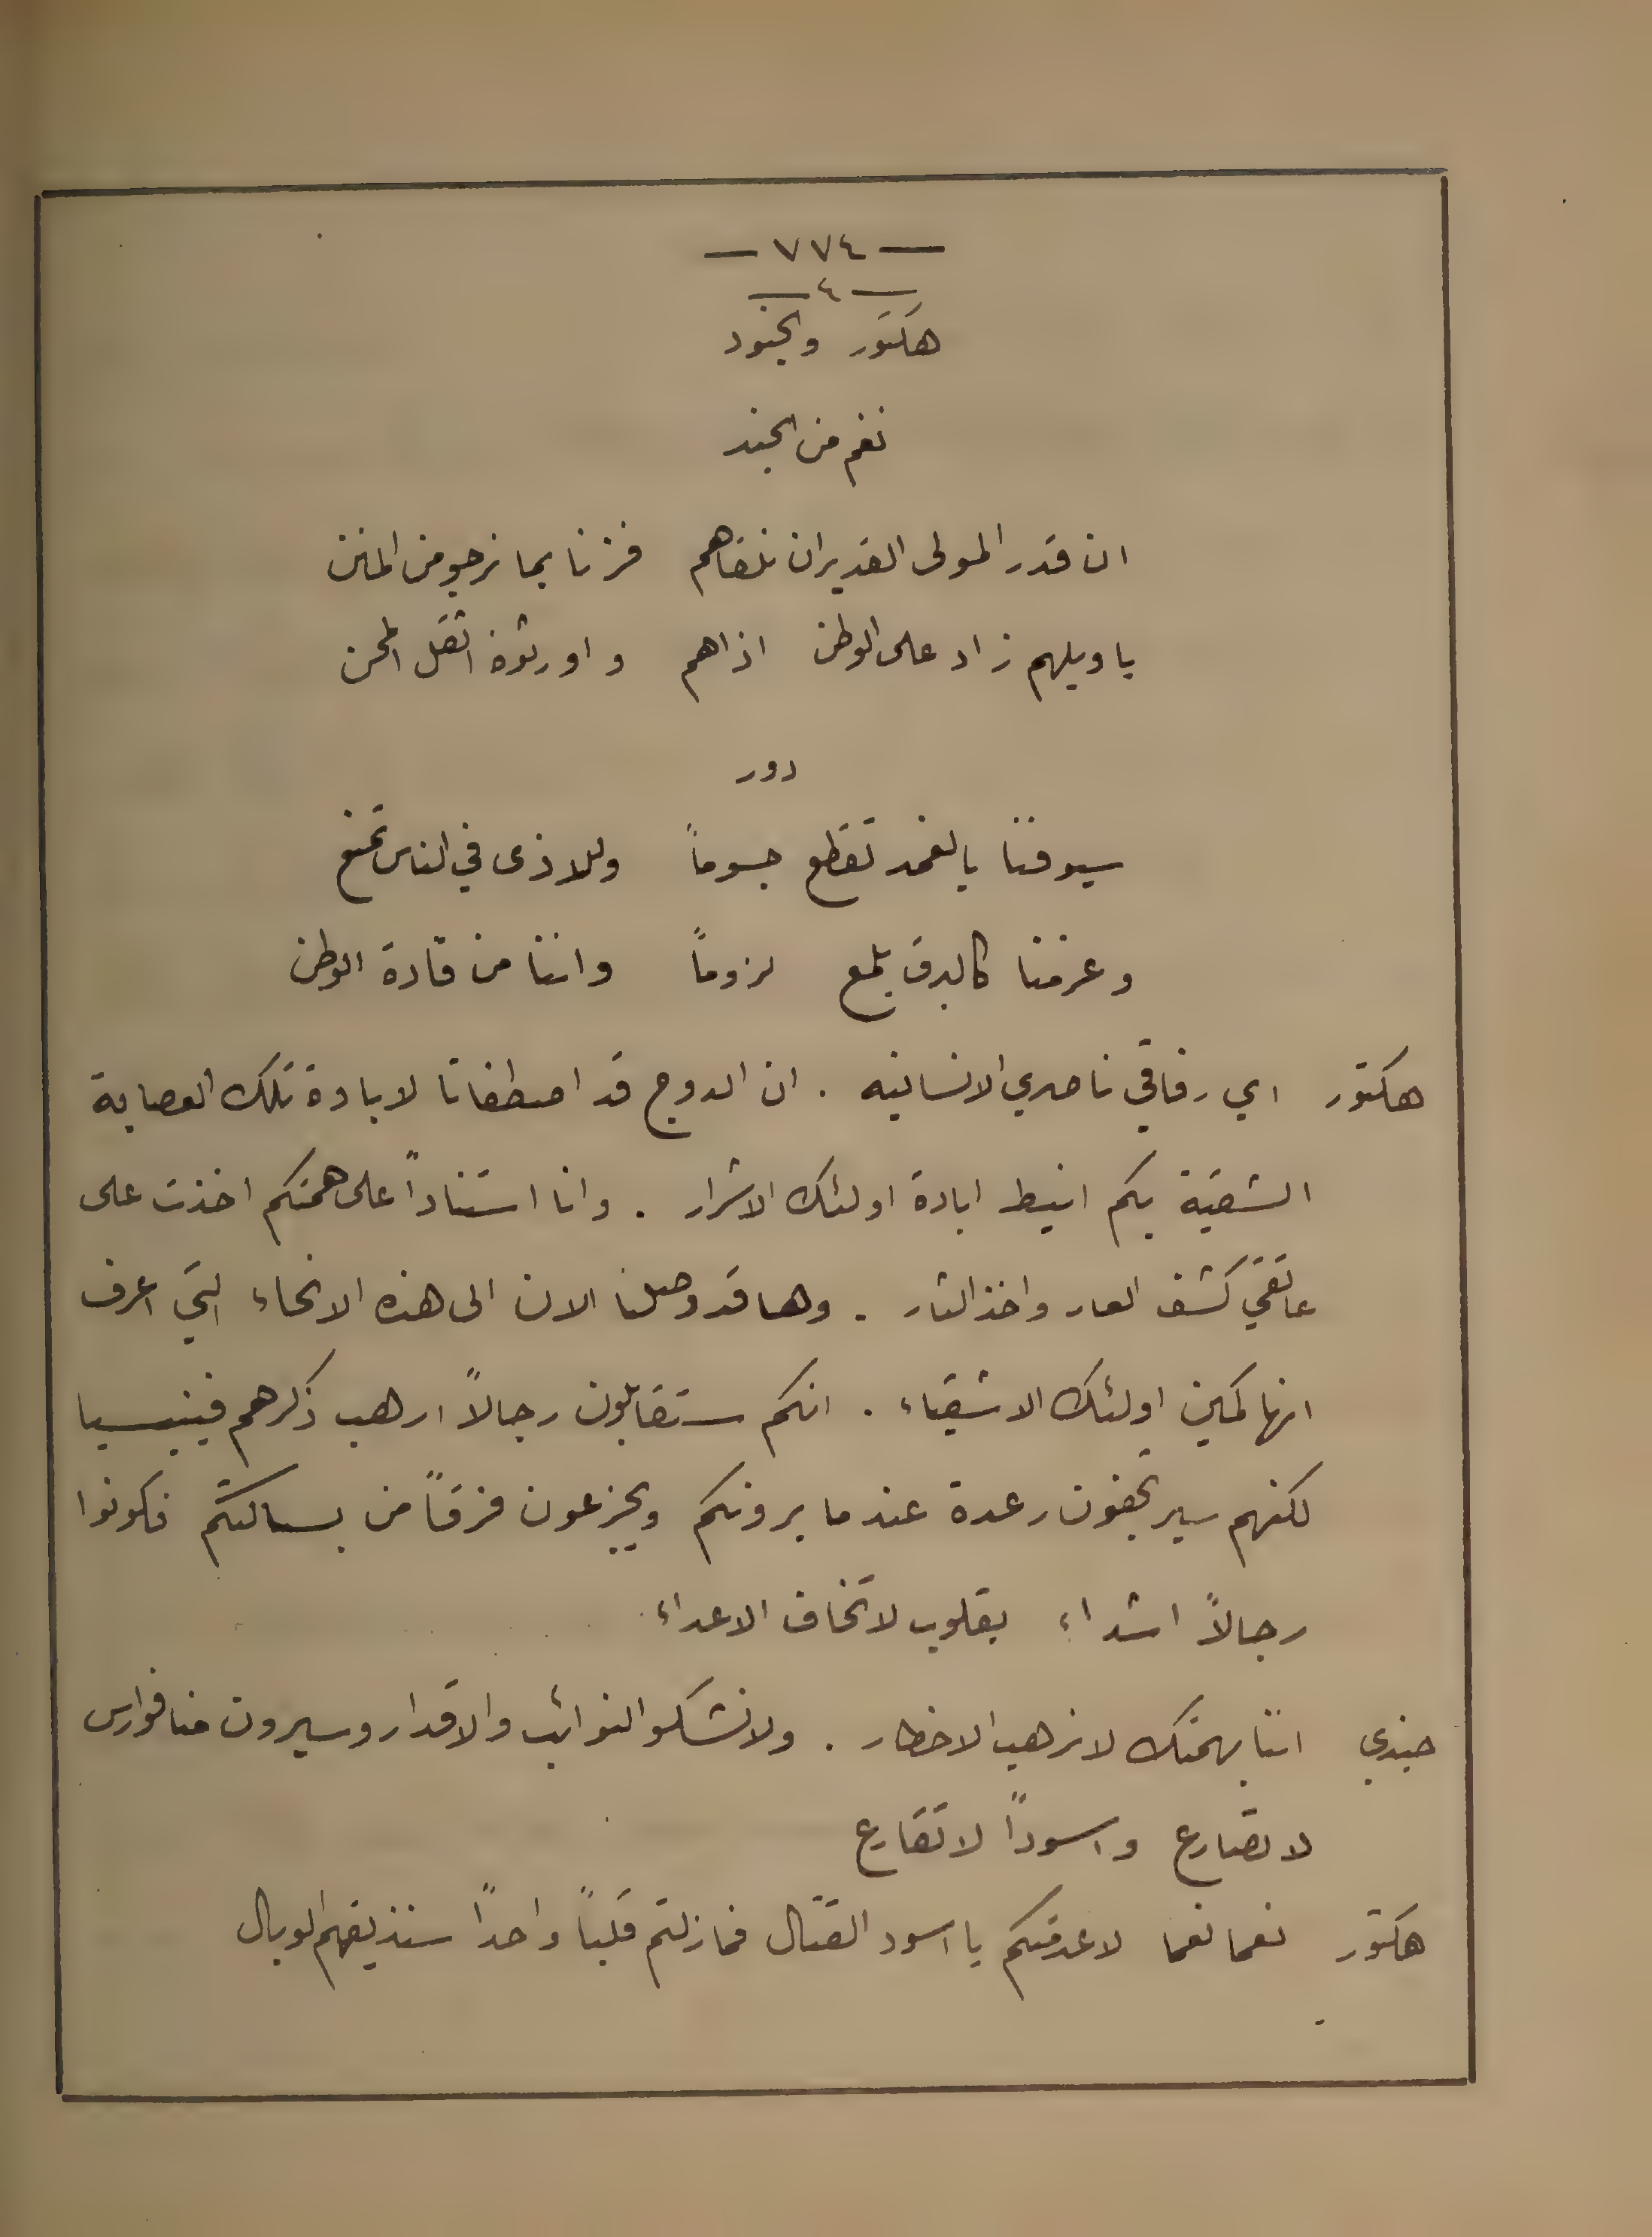 — ٧٧٤ —
— ٤ —
هكتور والجنود
نغم من الجند
ان قدر المولى القدير ان نلقاهم فزنا بما نرجو من المنن
يا ويلهم زاد على الوطن اذاهم و اورثوه اثقل المحن
دور
سيوفنا بالغمد تقطع جسوماً وللاذى في الناس تمنع
وعزمنا كالبرق يلمع لزوماً واننا من قادة الوطن
هكتور اي رفاقي ناصري الانسانيه . ان الدوج قد اصطفانا لابادة تلك العصابة
الشقية بكم انيط ابادة اولئك الاشرار . وانا استناداً على همتكم اخذت على
عاتقي كشف العار واخذ الثار . وها قد وصلنا الان الى هذه الانحاء التي اعرف
انها كمين اولئك الاشقياء . انكم ستقابلون رجالاً ارهب ذكرهم فينيسيا
لكنهم سيرتجفون رعدة عندما يرونكم ويجزعون فرقاً من بسالتكم فكونوا
رجالاً اشداء بقلوب لا تخاف الاعداء
جندي اننا بهمتك لا نرهب الاخطار . ولا نشكو النوائب والاقدار وسيرون منا فوارس
لا تصارع واسوداً لا تقارع
هكتور نعما نعما لا عدمتكم يا اسود القتال فما زلتم قلباً واحداً سنذيقهم الوبال